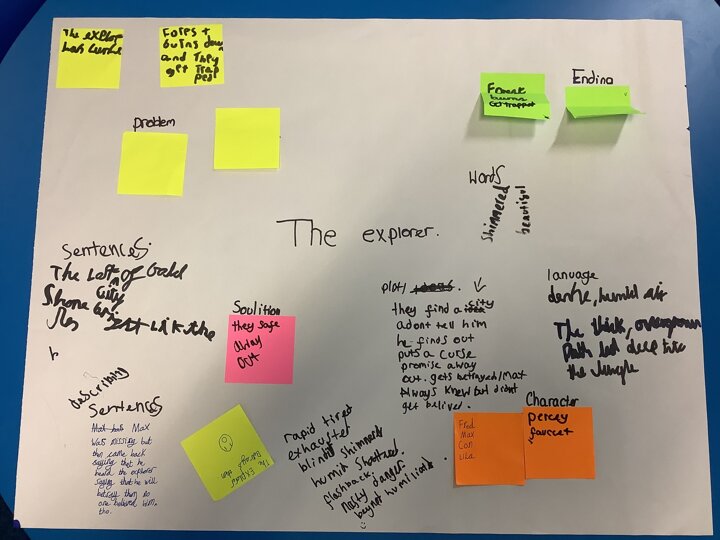 The explor
has curse
Forest
burns down
and They
get Trap
ped
Problem
Forest
burns
Get trappet
Ending
Words
Shimmered
beautiful
The explorer.
Sentences
The Lost of Gold
in City
Shone
like the
Soulition
they safe
away
out
plot/ ideas.
they find a city
adont tell him
he finds out
puts a curse
promise away
out. gets betrayed/mat
Always knew but didnt
get belived.
lanuage
dense, humid air
The thick, overgrown
Path led deep into
the Jungle
Describing
Sentences
Max
Was missing but
then came back
saying that he
heard the explorer
saying that he will
betray them no
one believed him,
tho.
The Explorer
Betrays them
rapid tired
exhauster
blindid Shimmery
humid Shattered.
flashback
nasty danger.
beyond humiliand.
Fred
Max
Con
Lila
Character
percey
fawcet